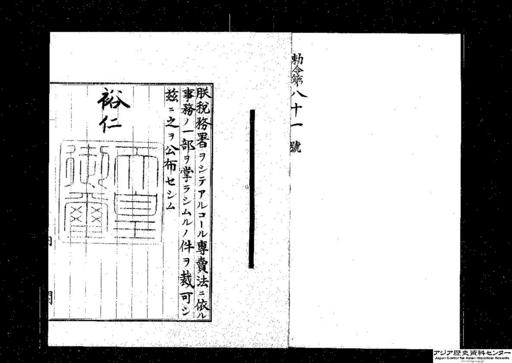 勅令第八十一號
朕稅務署ヲシテアルコール專賣法ニ依ル
事務ノ一部ヲ掌ラシムルノ件ヲ裁可シ
茲ニ之ヲ公布セシム
裕仁
天皇
御璽
アジア歴史資料センター
Japan Center for Asian Historical Records